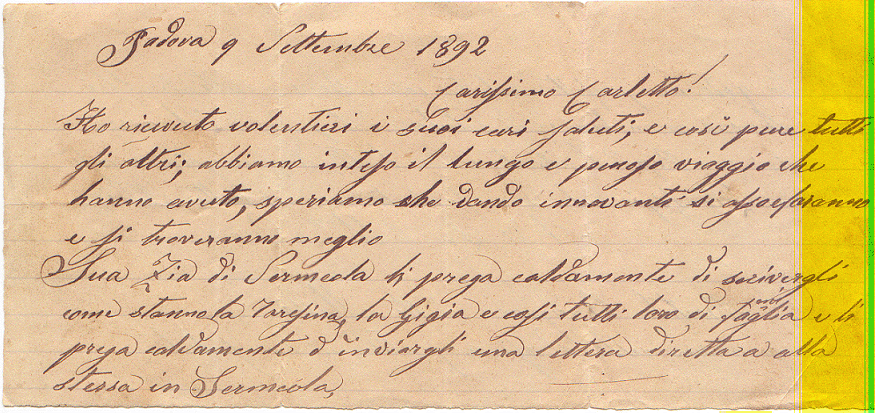 Padova 9 Settembre 1892
Carissimo Carletto!
Ho ricevuto volentieri i suoi cari saluti; e così pure tutti
gli altri; abbiamo inteso il lungo e penoso viaggio che
hanno avuto, speriamo che dando innovanti si assoefaranno
e si troveranno meglio
Sua Zia di Sermeola li prega caldamente di scrivergli
come stanno la Taresina, la Gigia e così tutti loro di famiglia e li
prega caldamente d'inviargli una lettera diretta a alla
stessa in Sermeola,